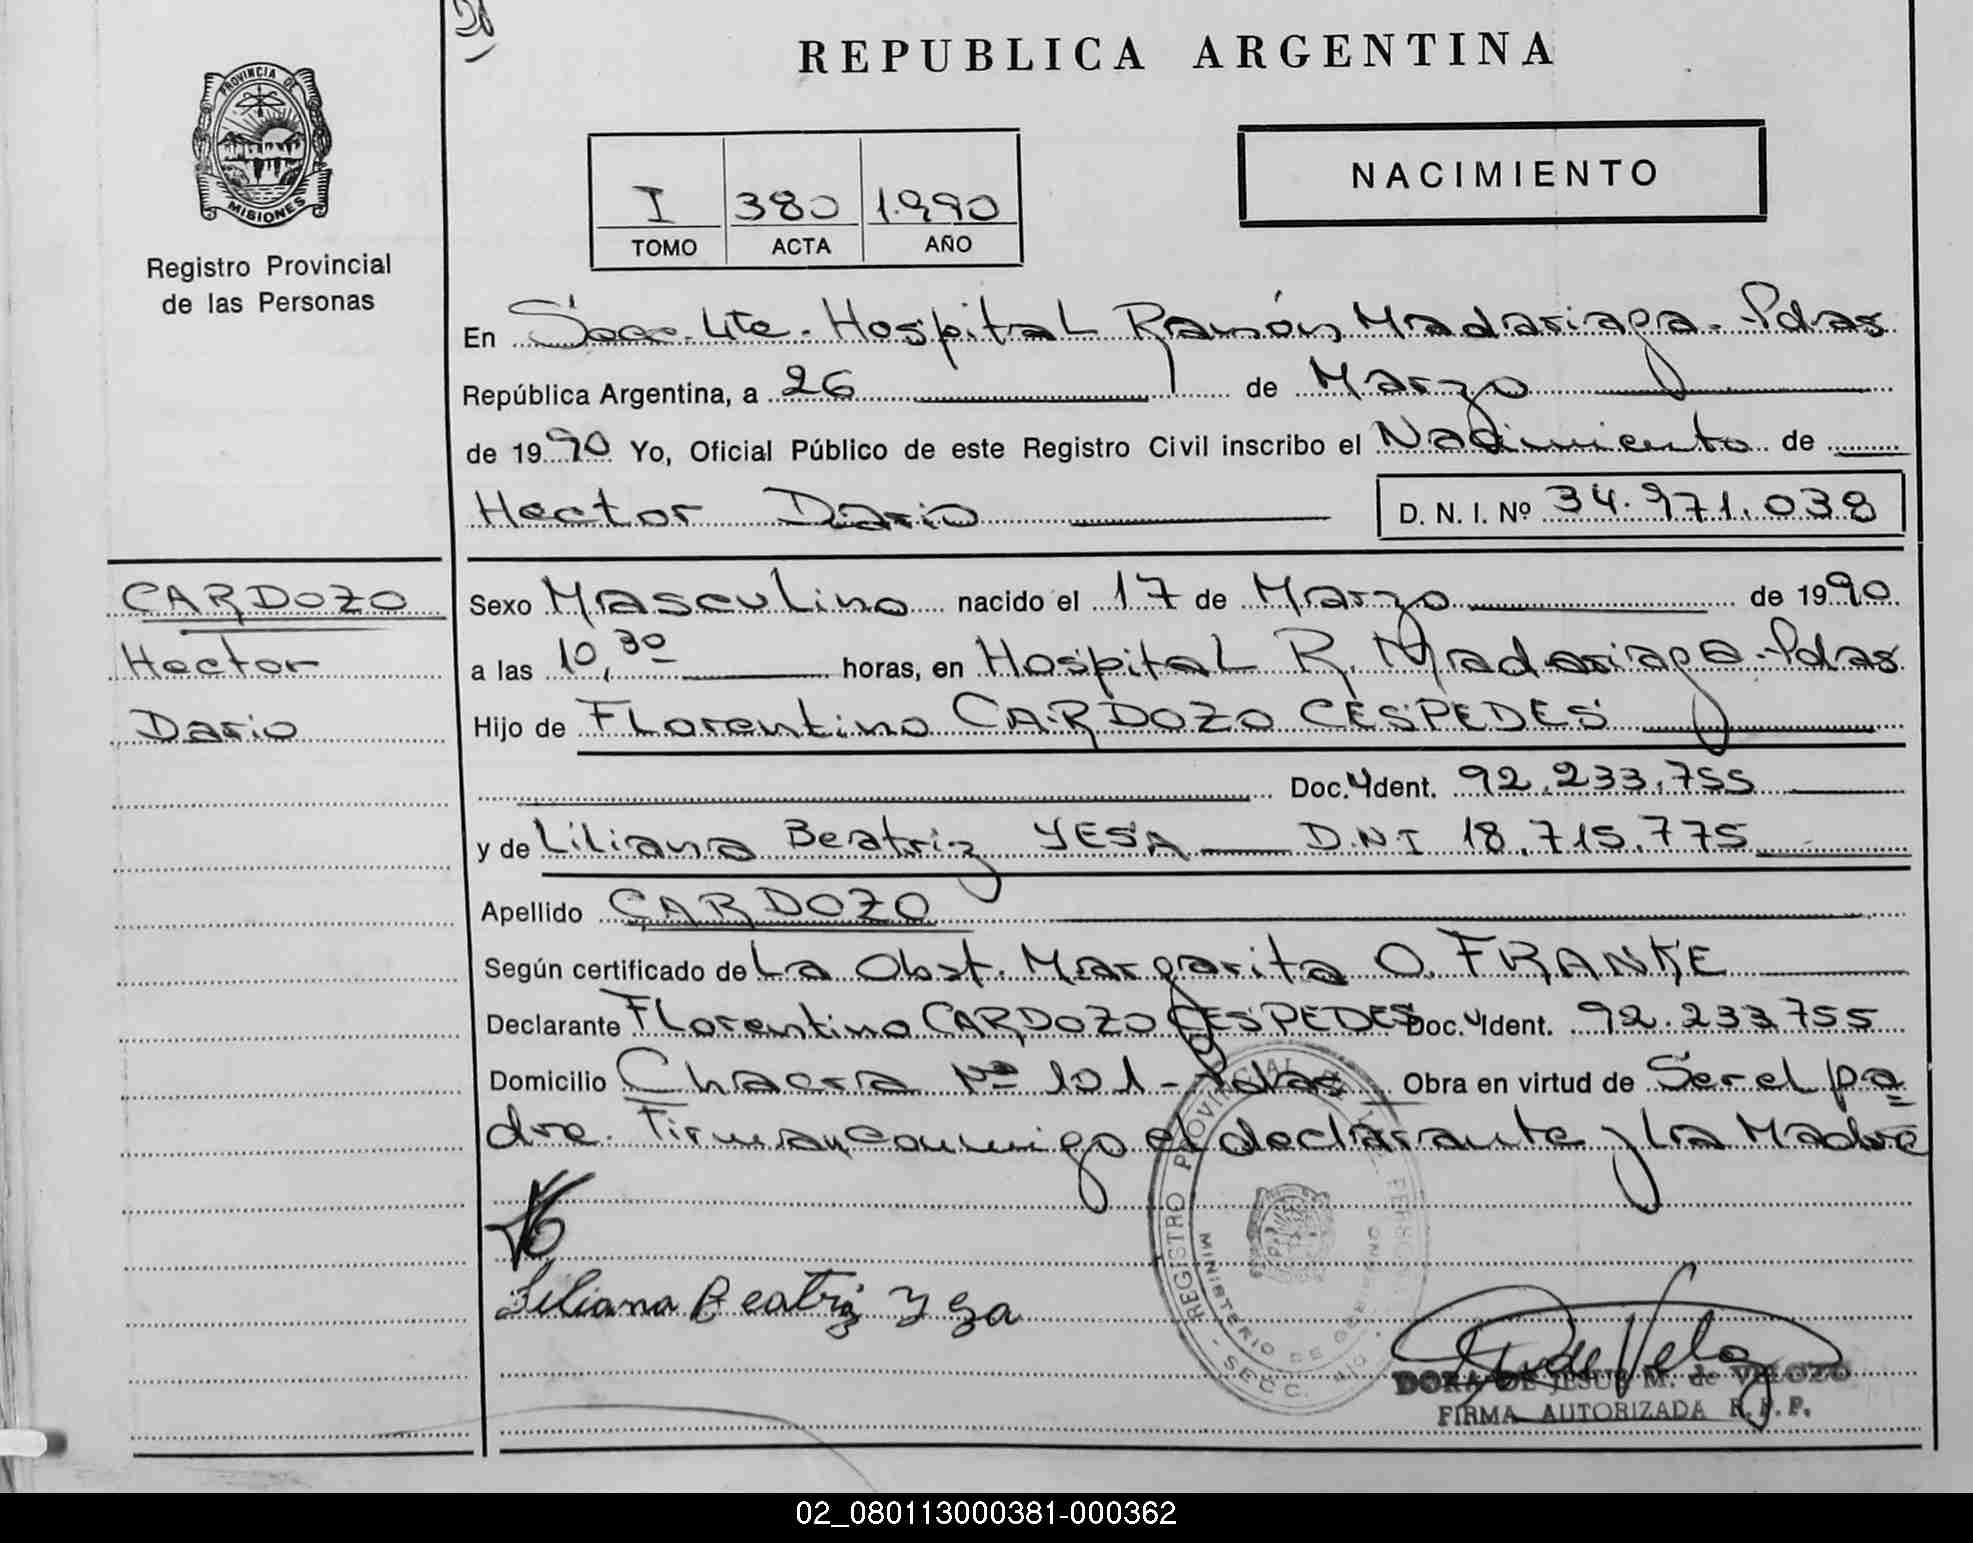 REPUBLICA ARGENTINA
PROVINCIA DE
MISIONES
Registro Provincial
de las Personas
I 380 1.990
TOMO ACTA AÑO
NACIMIENTO
En Secc. 4te. Hospital Ramón Madariaga - Pdas
República Argentina, a 26 de Marzo
de 1990 Yo, Oficial Público de este Registro Civil inscribo el Nacimiento de
Hector Dario D. N. I. Nº 34.971.038
CARDOZO
Hector
Dario
Sexo Masculino nacido el 17 de Marzo de 1990
a las 10,30 horas, en Hospital R. Madariaga - Pdas
Hijo de Florentino CARDOZO CESPEDES
Doc. Ydent. 92.233.755
y de Liliana Beatriz YESA D.N.I 18.715.775
Apellido CARDOZO
Según certificado de La Obst. Margarita O. FRANKE
Declarante Florentino CARDOZO CESPEDES Doc. Ydent. 92.233.755
Domicilio Chacra Nº 101 - Pdas Obra en virtud de Ser el pa=
dre. Firman conmigo el declarante y La Madre
Liliana Beatriz Yesa
REGISTRO PROVINCIAL DE LAS PERSONAS
MINISTERIO DE GOBIERNO
SECC.
DORA DE JESUS M. de VELOZO
FIRMA AUTORIZADA R. P. P.
02_080113000381-000362